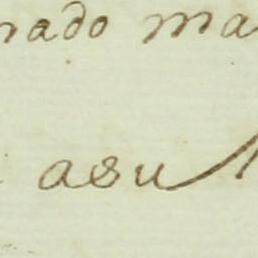 nado ma
asu